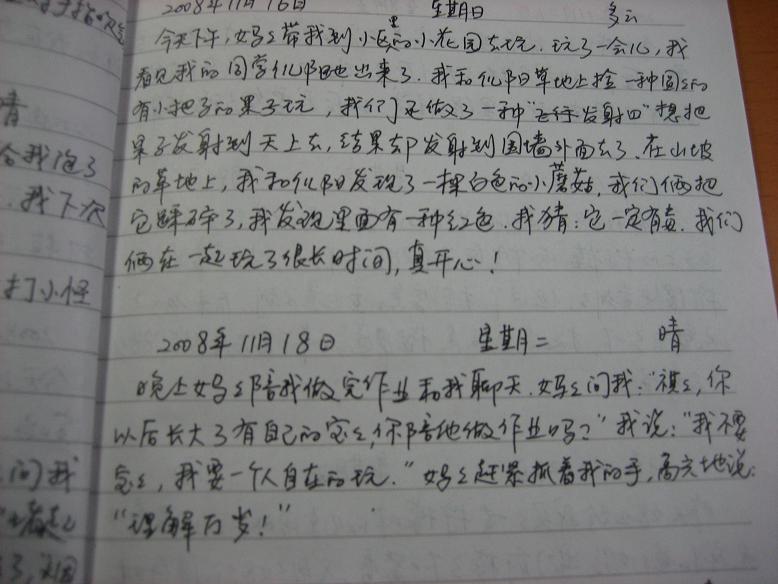 2008年11月16日 星期日 多云
今天下午,妈妈带我到小区里的小花园去玩.玩了一会儿,我
看见我的同学仉阳也出来了.我和仉阳草地上捡一种圆圆的
有小把子的果子玩,我们还做了一种"飞行发射四"想把
果子发射到天上去,结果却发射到围墙外面去了.在山坡
的草地上,我和仉阳发现了一棵白色的小蘑菇.我们俩把
它踩碎了,我发现里面有一种红色.我猜:它一定有毒.我们
俩在一起玩了很长时间,真开心!
2008年11月18日 星期二 晴
晚上妈妈陪我做完作业和我聊天.妈妈问我:"祺祺,你
以后长大了有自己的宝宝,你陪他做作业吗?"我说:"我不要
宝宝,我要一个人自在的玩."妈妈赶紧抓着我的手,高兴地说:
"理解万岁!"
晴
我泡了
我下次
打小怪
问我